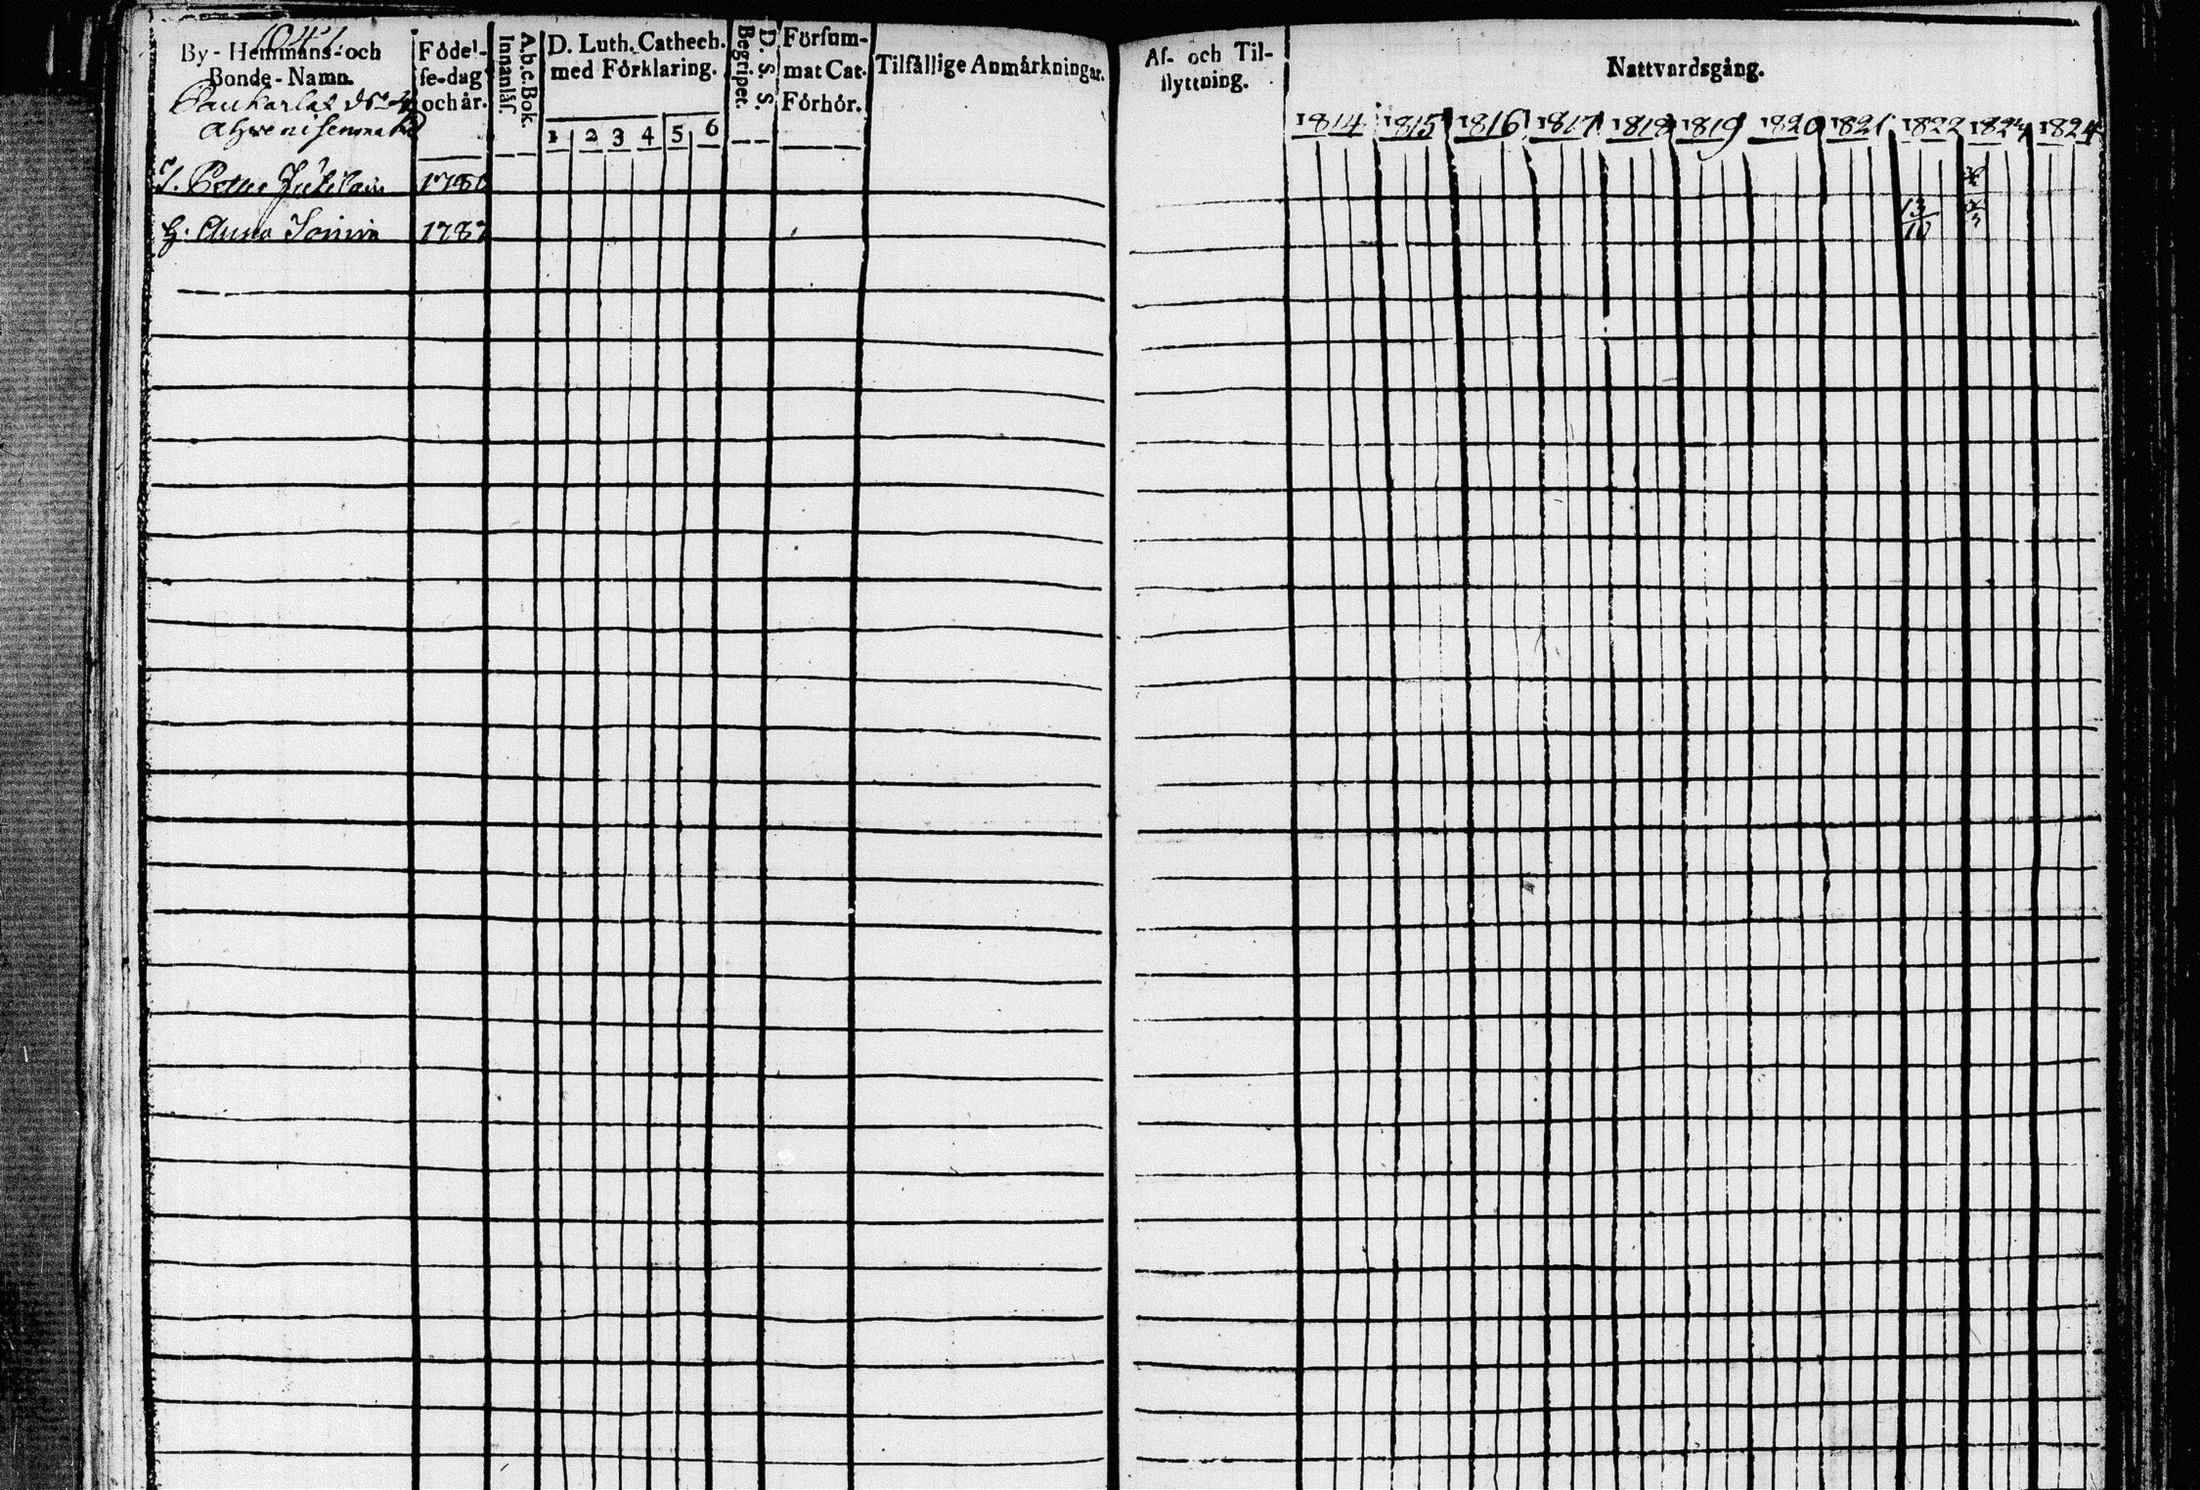 By - Hemmans - och
Bonde - Namn.
Paukarlax
Födel-
se-dag
och år.
A.b.c.Bok.
Innanläſ.
D. Luth. Cathech.
med Förklaring.
1 2 3 4 5 6
D. S. S.
Begriper.
Förſum-
mat Cat.
Förhör.
Tilfällige Anmärkningar.
Af- och Til-
flyttning.
Nattvardsgång.
1814 1815 1816 1817 1818 1819 1820 1821 1822 1824
Petter
H. Anna 1787
13
10